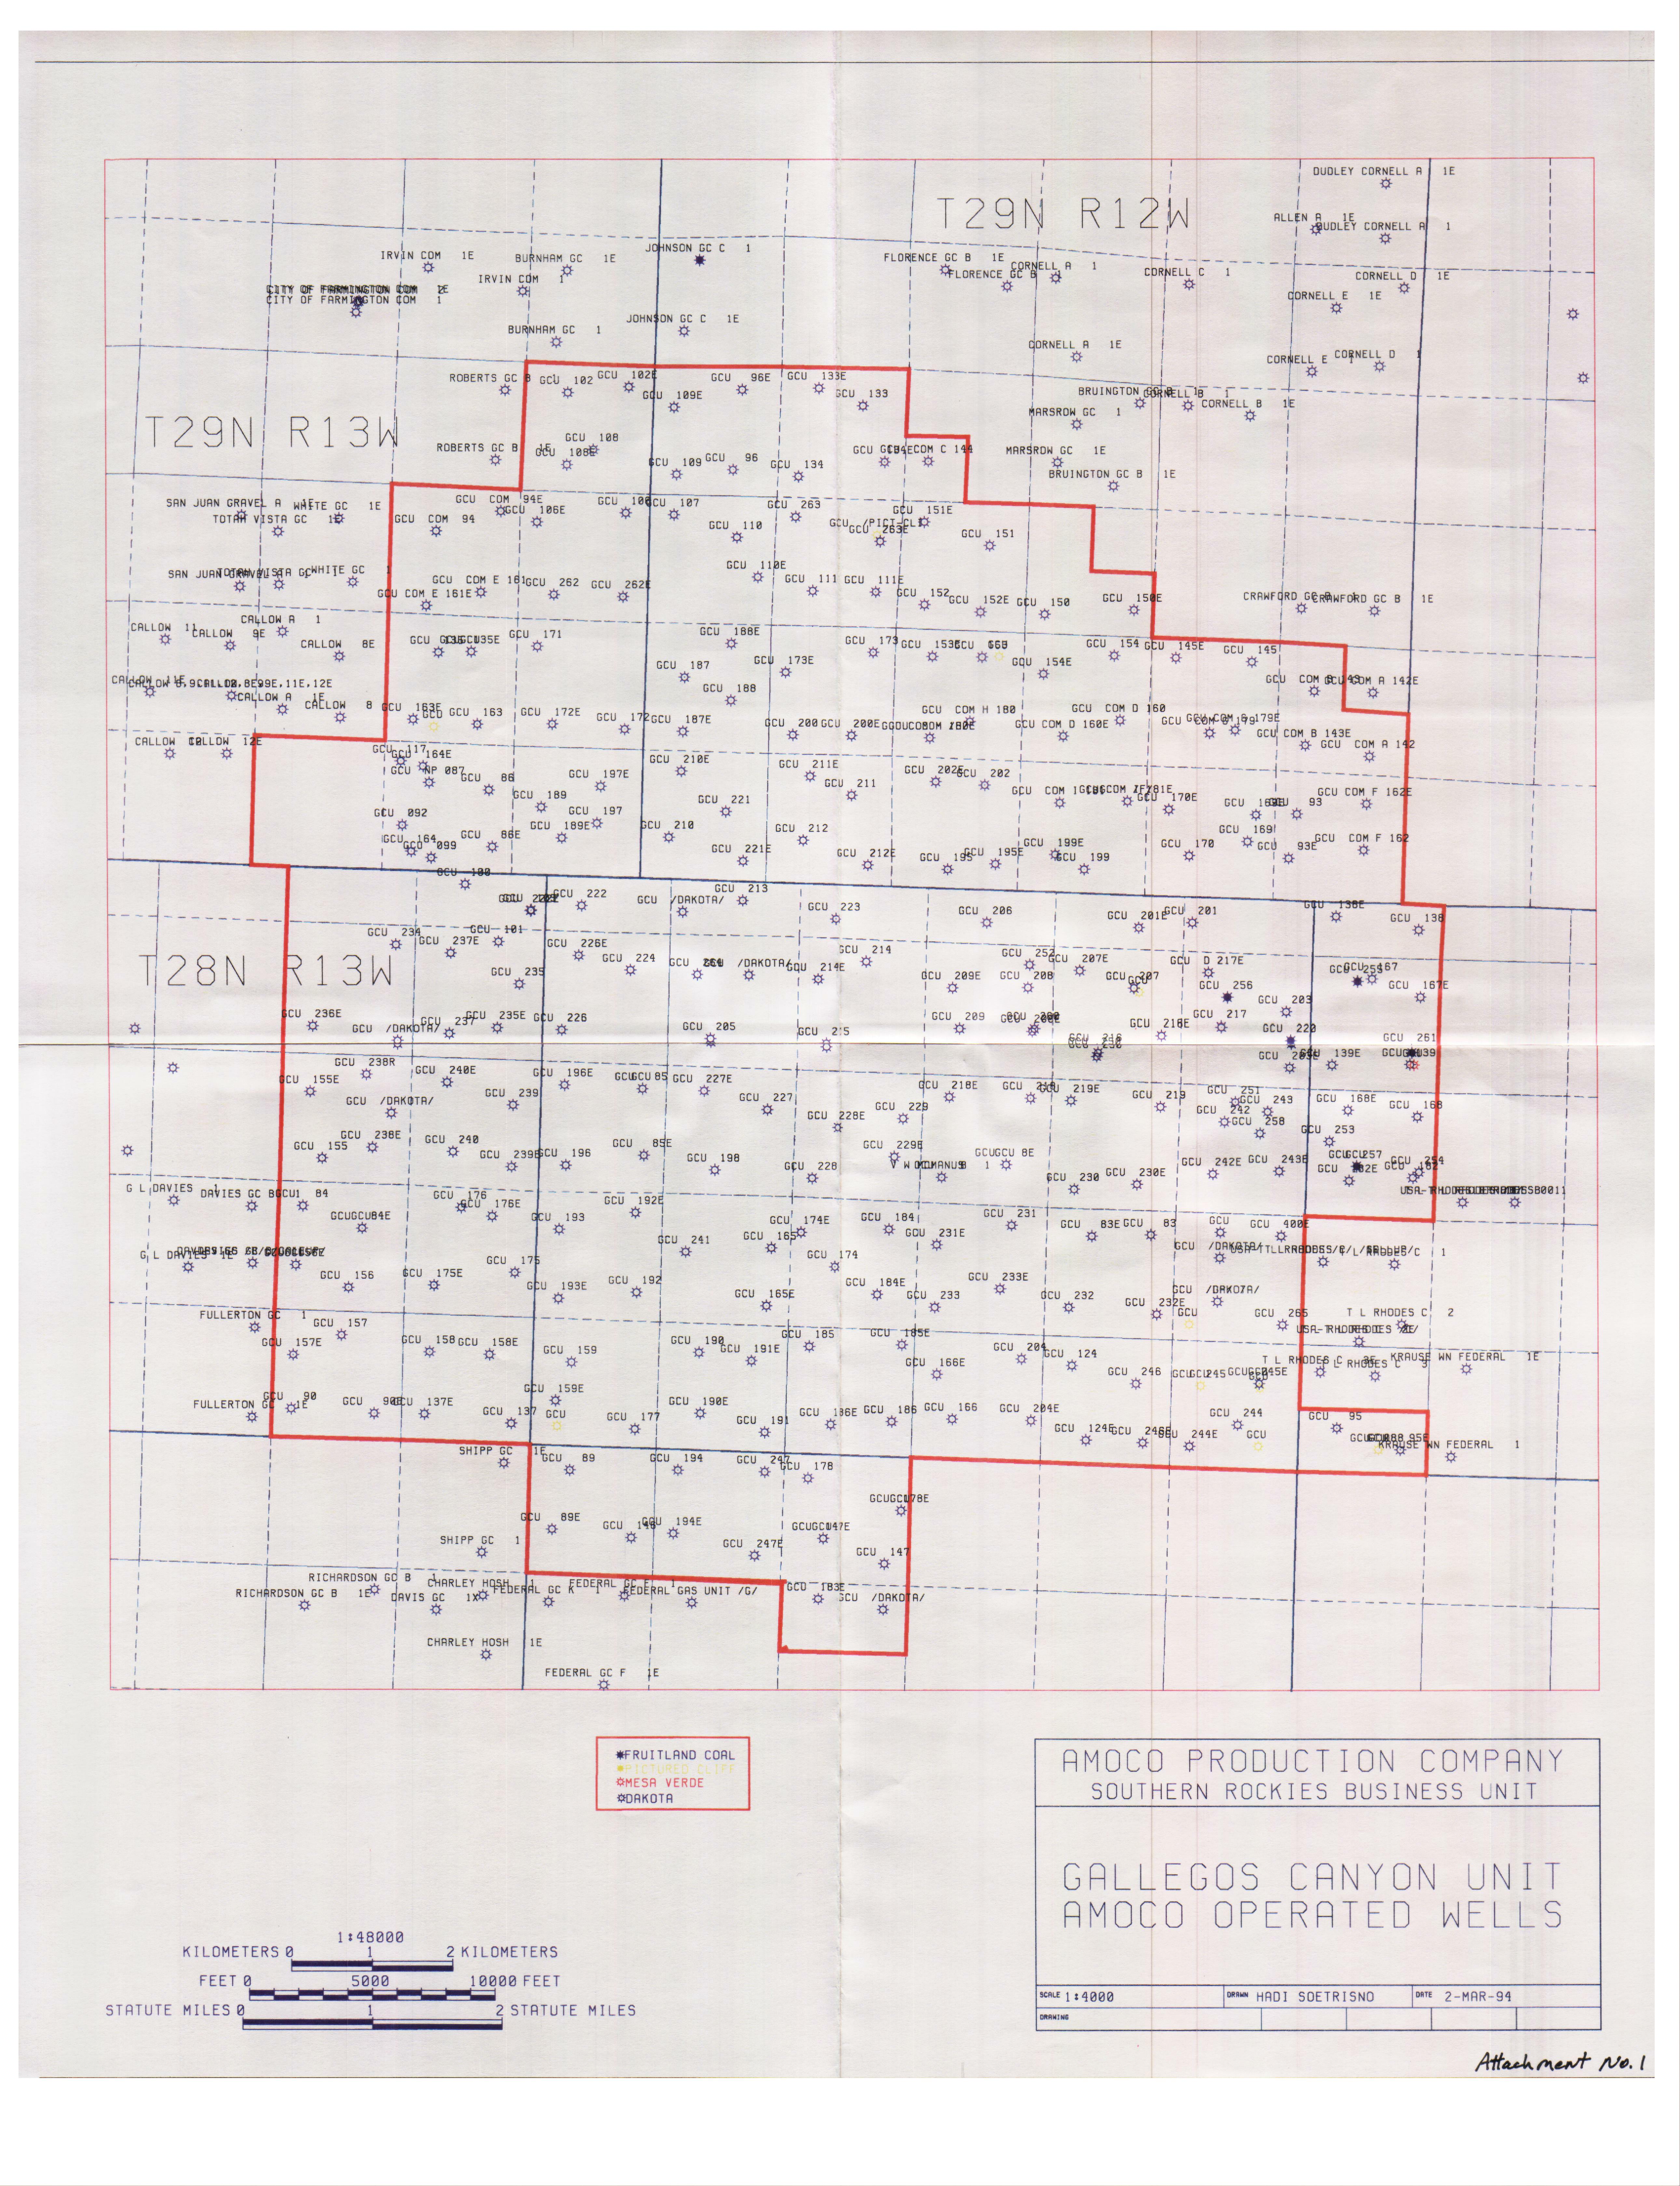 DUDLEY CORNELL A 1E
T29N R12W
ALLEN A 1E
DUDLEY CORNELL A 1
JOHNSON GC C 1
IRVIN COM 1E
BURNHAM GC 1E
FLORENCE GC B 1E
CORNELL A 1
FLORENCE GC B 1
CORNELL C 1
CORNELL D 1E
IRVIN COM 1
CITY OF FARMINGTON COM 1
CORNELL E 1E
JOHNSON GC C 1E
BURNHAM GC 1
CORNELL A 1E
CORNELL E 1
CORNELL D 1
ROBERTS GC B 1
GCU 102
GCU 102E
GCU 96E
GCU 133E
GCU 109E
GCU 133
BRUINGTON GC B 1
CORNELL B 1
CORNELL B 1E
MARSROW GC 1
T29N R13W
ROBERTS GC B 1E
GCU 108
GCU 108E
GCU 109
GCU 96
GCU 134
GCU 134E
GCU COM C 144
MARSROW GC 1E
BRUINGTON GC B 1E
SAN JUAN GRAVEL A 1E
WHITE GC 1E
TOTAH VISTA GC 1E
GCU COM 94
GCU COM 94E
GCU 106E
GCU 106
GCU 107
GCU 110
GCU 263
GCU /PICT-CL
GCU 263E
GCU 151E
GCU 151
SAN JUAN GRAVEL A 1
TOTAH VISTA GC 1
WHITE GC 1
GCU COM E 161
GCU COM E 161E
GCU 262
GCU 262E
GCU 110E
GCU 111
GCU 111E
GCU 152
GCU 152E
GCU 150
GCU 150E
CRAWFORD GC B 1
CRAWFORD GC B 1E
CALLOW 11
CALLOW 9E
CALLOW A 1
CALLOW 8E
GCU 135E
GCU 171
GCU 188E
GCU 187
GCU 173E
GCU 173
GCU 153E
GCU 154E
GCU 154
GCU 145E
GCU 145
CALLOW 11E
CALLOW A 1E
CALLOW 8
GCU 163E
GCU
GCU 163
GCU 172E
GCU 172
GCU 187E
GCU 188
GCU 200
GCU 200E
GCU COM H 180
GCU COM D 160E
GCU COM D 160
GCU COM G 179E
GCU COM B 143
GCU COM A 142E
GCU COM B 143E
GCU COM A 142
CALLOW 12E
GCU 117
GCU 164E
GCU NP 087
GCU 86
GCU 197E
GCU 210E
GCU 211E
GCU 211
GCU 202E
GCU 202
GCU 170E
GCU 93
GCU COM F 162E
GCU 092
GCU 189
GCU 197
GCU 221
GCU 164
GCU 099
GCU 86E
GCU 189E
GCU 210
GCU 212
GCU 221E
GCU 212E
GCU 195
GCU 195E
GCU 199E
GCU 199
GCU 170
GCU 169
GCU 93E
GCU COM F 162
GCU 100
GCU 222
GCU /DAKOTA/
GCU 213
GCU 223
GCU 206
GCU 201E
GCU 201
GCU 138E
GCU 138
T28N R13W
GCU 234
GCU 237E
GCU 101
GCU 226E
GCU 235
GCU 224
GCU 264
GCU /DAKOTA/
GCU 214E
GCU 214
GCU 209E
GCU 252
GCU 208
GCU 207E
GCU 207
GCU D 217E
GCU 256
GCU 203
GCU 255
GCU 167
GCU 167E
GCU 236E
GCU /DAKOTA/
GCU 237
GCU 235E
GCU 226
GCU 205
GCU 215
GCU 209
GCU 216
GCU 216E
GCU 217
GCU 220
GCU 203E
GCU 139E
GCU 261
GCU 238R
GCU 155E
GCU 240E
GCU 196E
GCU 85
GCU 227E
GCU /DAKOTA/
GCU 239
GCU 227
GCU 228E
GCU 229
GCU 218E
GCU 218
GCU 219E
GCU 219
GCU 251
GCU 243
GCU 242
GCU 258
GCU 168E
GCU 168
GCU 253
GCU 155
GCU 238E
GCU 240
GCU 239E
GCU 196
GCU 85E
GCU 198
GCU 228
GCU 229E
V W MCMANUS 1
GCU 8E
GCU 230
GCU 230E
GCU 242E
GCU 243E
GCU 257
GCU 182E
GCU 254
GCU 182
G L DAVIES 1
DAVIES GC B 1
GCU 84
GCU 84E
GCU 176
GCU 176E
GCU 193
GCU 192E
GCU 241
GCU 165
GCU 174E
GCU 184
GCU 231E
GCU 231
GCU 83E
GCU 83
GCU
GCU 400E
GCU /DAKOTA/
T L RHODES C 1
G L DAVIES 1E
GCU 156
GCU 175E
GCU 175
GCU 193E
GCU 192
GCU 165E
GCU 174
GCU 184E
GCU 233
GCU 233E
GCU 232
GCU 232E
GCU /DAKOTA/
GCU
GCU 265
T L RHODES C 2
FULLERTON GC 1
GCU 157
GCU 157E
GCU 158
GCU 158E
GCU 159
GCU 190
GCU 191E
GCU 185
GCU 185E
GCU 166E
GCU 204
GCU 124
GCU 246
GCU 245
GCU 245E
T L RHODES C 3E
T L RHODES C 3
KRAUSE WN FEDERAL 1E
FULLERTON GC 1E
GCU 90
GCU 90E
GCU 137E
GCU 137
GCU 159E
GCU
GCU 177
GCU 190E
GCU 191
GCU 186E
GCU 186
GCU 166
GCU 204E
GCU 124E
GCU 246E
GCU 244E
GCU 244
GCU
GCU 95
KRAUSE WN FEDERAL 1
SHIPP GC 1E
GCU 89
GCU 194
GCU 247
GCU 178
GCU 178E
GCU 89E
GCU 148
GCU 194E
GCU 247E
GCU 147E
GCU 147
SHIPP GC 1
RICHARDSON GC B 1
RICHARDSON GC B 1E
CHARLEY HOSH 1
DAVIS GC 1X
FEDERAL GC K 1
FEDERAL GC F 1
FEDERAL GAS UNIT /G/
GCU 183E
GCU /DAKOTA/
CHARLEY HOSH 1E
FEDERAL GC F 1E
FRUITLAND COAL
PICTURED CLIFF
MESA VERDE
DAKOTA
AMOCO PRODUCTION COMPANY
SOUTHERN ROCKIES BUSINESS UNIT
GALLEGOS CANYON UNIT
AMOCO OPERATED WELLS
SCALE 1:4000 DRAWN HADI SOETRISNO DATE 2-MAR-94
DRAWING
1:48000
KILOMETERS 0 1 2 KILOMETERS
FEET 0 5000 10000 FEET
STATUTE MILES 0 1 2 STATUTE MILES
Attachment No. 1